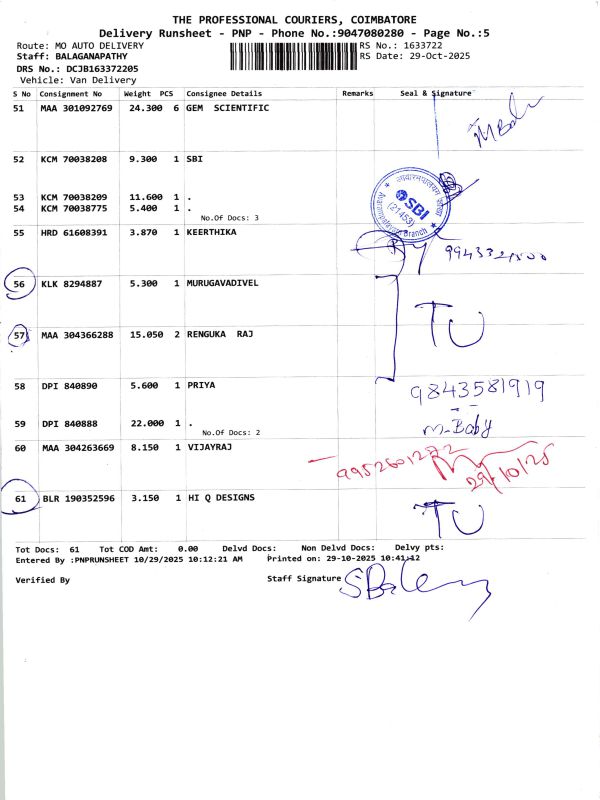 THE PROFESSIONAL COURIERS, COIMBATORE
Delivery Runsheet - PNP - Phone No.:9047080280 - Page No.:5
Route: MO AUTO DELIVERY RS No.: 1633722
Staff: BALAGANAPATHY RS Date: 29-Oct-2025
DRS No.: DCJB163372205
Vehicle: Van Delivery
S No Consignment No Weight PCS Consignee Details Remarks Seal & Signature
51 MAA 301092769 24.300 6 GEM SCIENTIFIC
52 KCM 70038208 9.300 1 SBI
53 KCM 70038209 11.600 1 .
54 KCM 70038775 5.400 1 .
No.Of Docs: 3
SBI
(21453)
Branch
55 HRD 61608391 3.870 1 KEERTHIKA
56 KLK 8294887 5.300 1 MURUGAVADIVEL
TU
57 MAA 304366288 15.050 2 RENGUKA RAJ
58 DPI 840890 5.600 1 PRIYA 9843581919
59 DPI 840888 22.000 1 . M-Baby
No.Of Docs: 2
60 MAA 304263669 8.150 1 VIJAYRAJ
9952601272 29/10/25
61 BLR 190352596 3.150 1 HI Q DESIGNS TU
Tot Docs: 61 Tot COD Amt: 0.00 Delvd Docs: Non Delvd Docs: Delvy pts:
Entered By :PNPRUNSHEET 10/29/2025 10:12:21 AM Printed on: 29-10-2025 10:41:12
Verified By Staff Signature